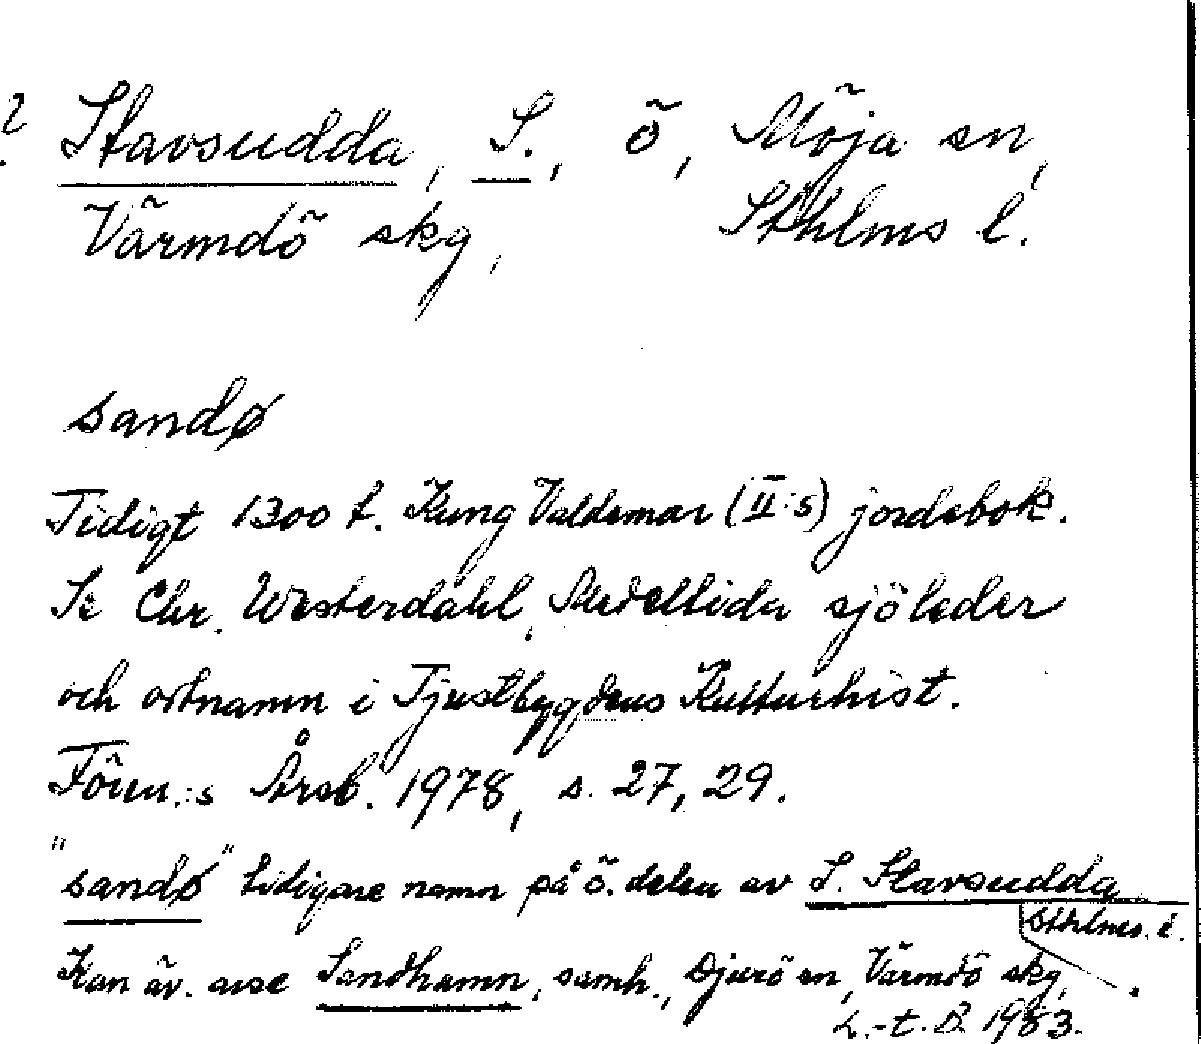 ? Stavsudda, S., ö, Möja sn,
Värmdö skg, Sthlms l.
sandø
Tidigt 1300 t. Kung Valdemar (II:s) jordebok.
Se Chr. Westerdahl, Medeltida sjöleder
och ortnamn i Tjustbygdens Kulturhist.
Fören:s Årsb. 1978, s. 27, 29.
"sandø" tidigare namn på ö. delen av S. Stavsudda
Kan äv. avse Sandhamn, samh., Djurö sn, Värmdö skg, Sthlms. l.
L.-t. B. 1983.